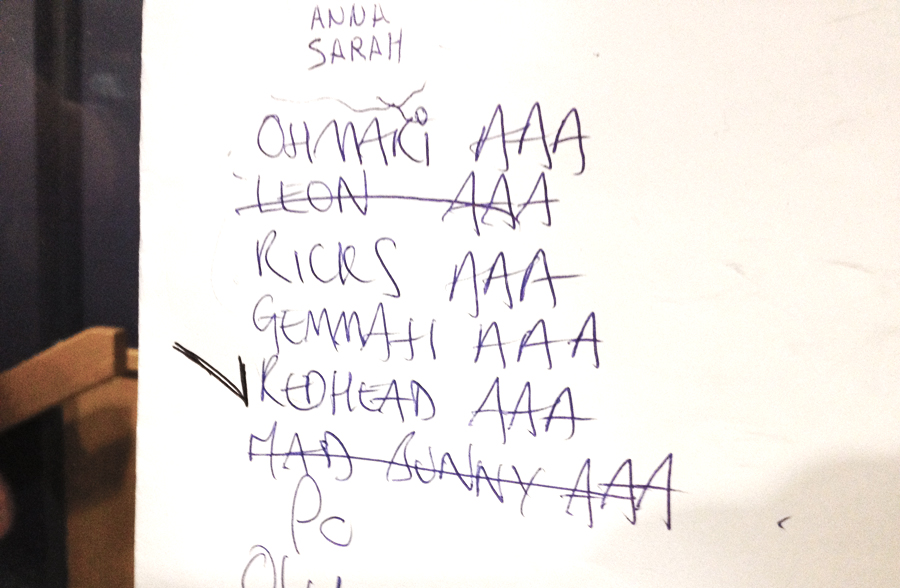 ANNA
SARAH
OHMAKI AAA
LEON AAA
RICKS AAA
GEMMAH AAA
REDHEAD AAA
MAD BUNNY AAA
Po